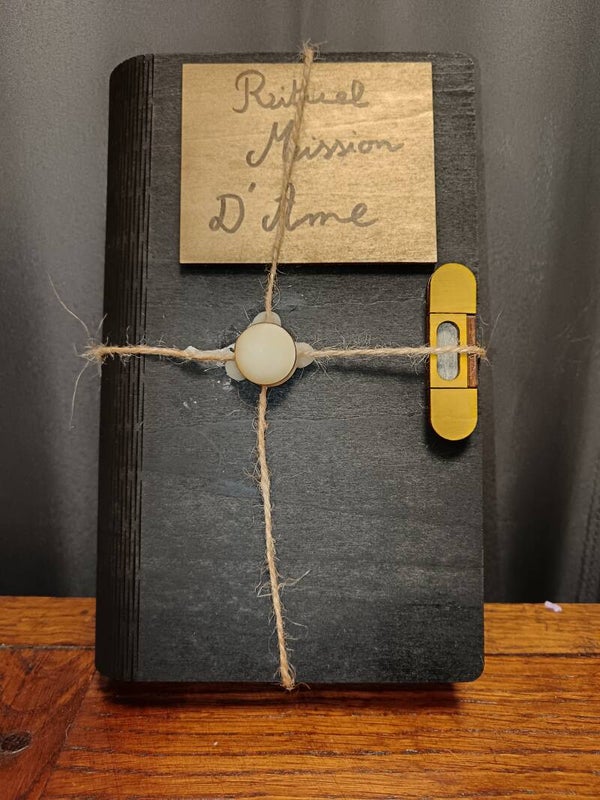 Rituel
Mission
D'Ame